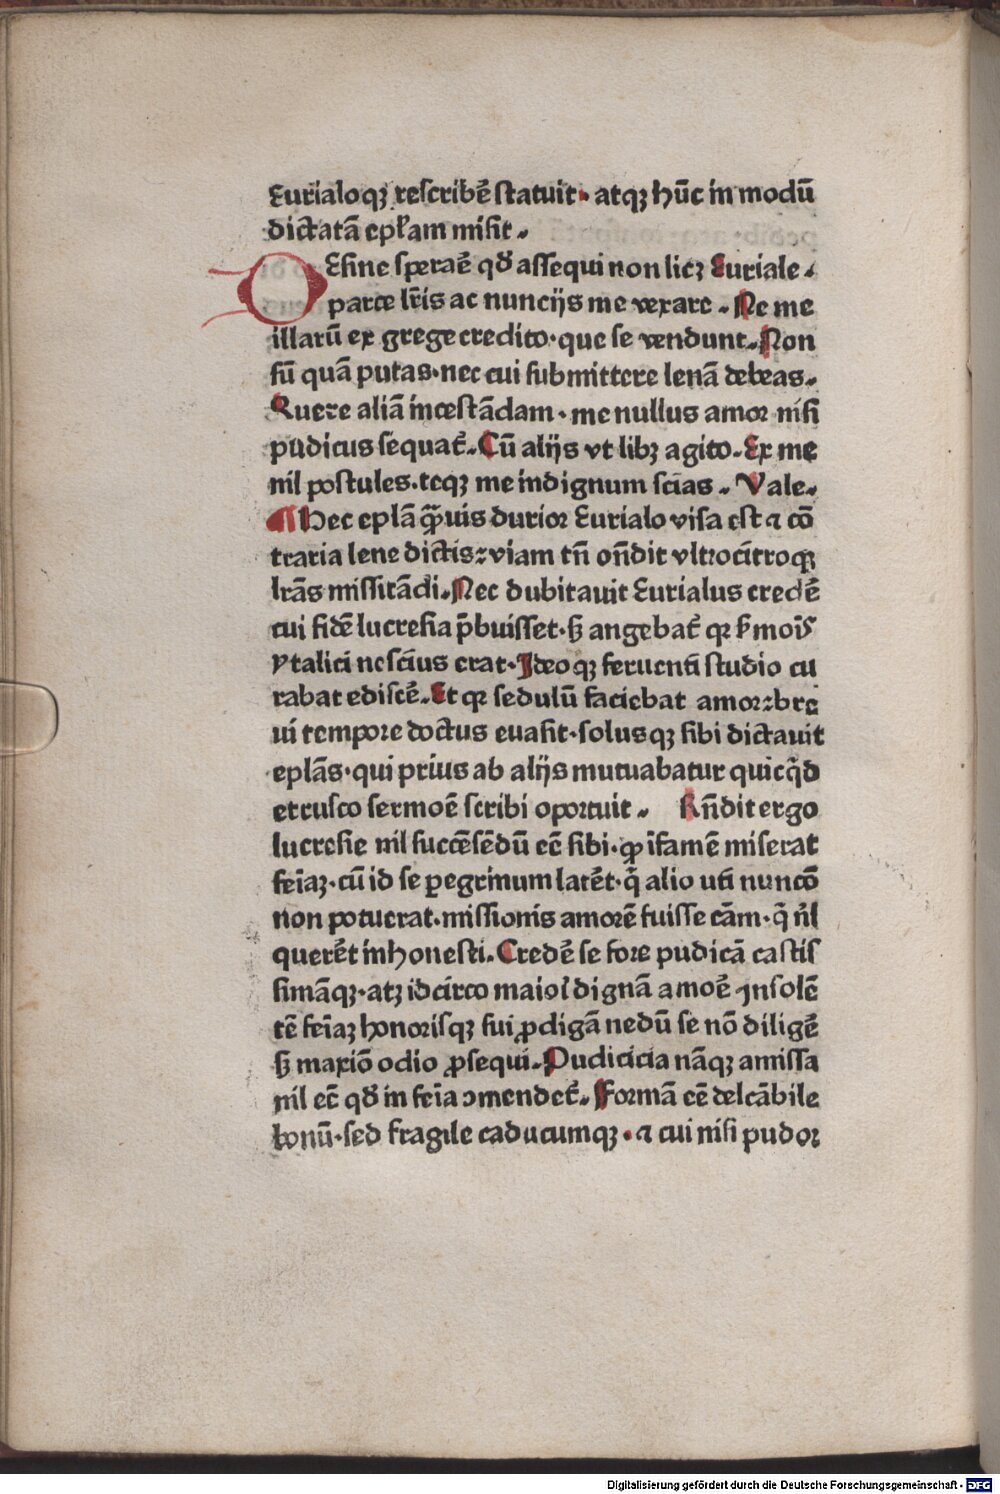 Eurialoqꝫ rescribẽ statuit· atqꝫ hũc in modũ
dictatã epl̃am misit.
DEsine sperāe qđ assequi non licꝫ Euriale.
parce lr̃is ac nuncijs me vexare. Ne me
illarũ ex grege credito·que se vendunt. Non
sũ quã putas·nec cui submittere lenã debeas.
Quere aliã incestãdam·me nullus amor nisi
pudicus sequat̃. Cũ alijs vt libꝫ agito. Ex me
nil postules·teqꝫ me indignum scias. Vale.
¶ Hec eplã q̃uis durior Eurialo visa est ⁊ cõ
traria lene dictis:viam tñ oñdit vltrocitroqꝫ
lrãs missitãdi. Nec dubitauit Eurialus credẽ
cui fidẽ lucresia p̃buisset·sꝫ angebat̃ qꝛ ẜmoĩs
ytalici nescius erat·Ideoqꝫ feruenti studio cu
rabat ediscẽ. Et qꝛ sedulũ faciebat amor:bre
ui tempore doctus euasit·solusqꝫ sibi dictauit
eplãs·qui prius ab alijs mutuabatur quicq̃d
etrusco sermoẽ scribi oportuit. Rñdit ergo
lucresie nil succẽsẽdũ eẽ sibi·ꝙ ĩfamẽ miserat
feĩaꝫ·cũ id se peregrinum latẽt·q̃ alio uti nuncõ
non potuerat·missionis amorẽ fuisse cãm·q̃ ñl
querẽt inhonesti. Credẽ se fore pudicã castis
simãqꝫ·atꝫ idcirco maioĩ dignã amoẽ Insolẽ
tẽ feĩaꝫ honorisqꝫ sui ꝓdigã nedũ se nõ diligẽ
sꝫ maxiõ odio ꝓsequi. Pudicicia nãqꝫ amissa
nil eẽ qđ in feĩa ꝯmendet̃. Formã eẽ delcãbile
bonũ·sed fragile caducumqꝫ·⁊ cui nisi pudor
Digitalisierung gefördert durch die Deutsche Forschungsgemeinschaft - DFG